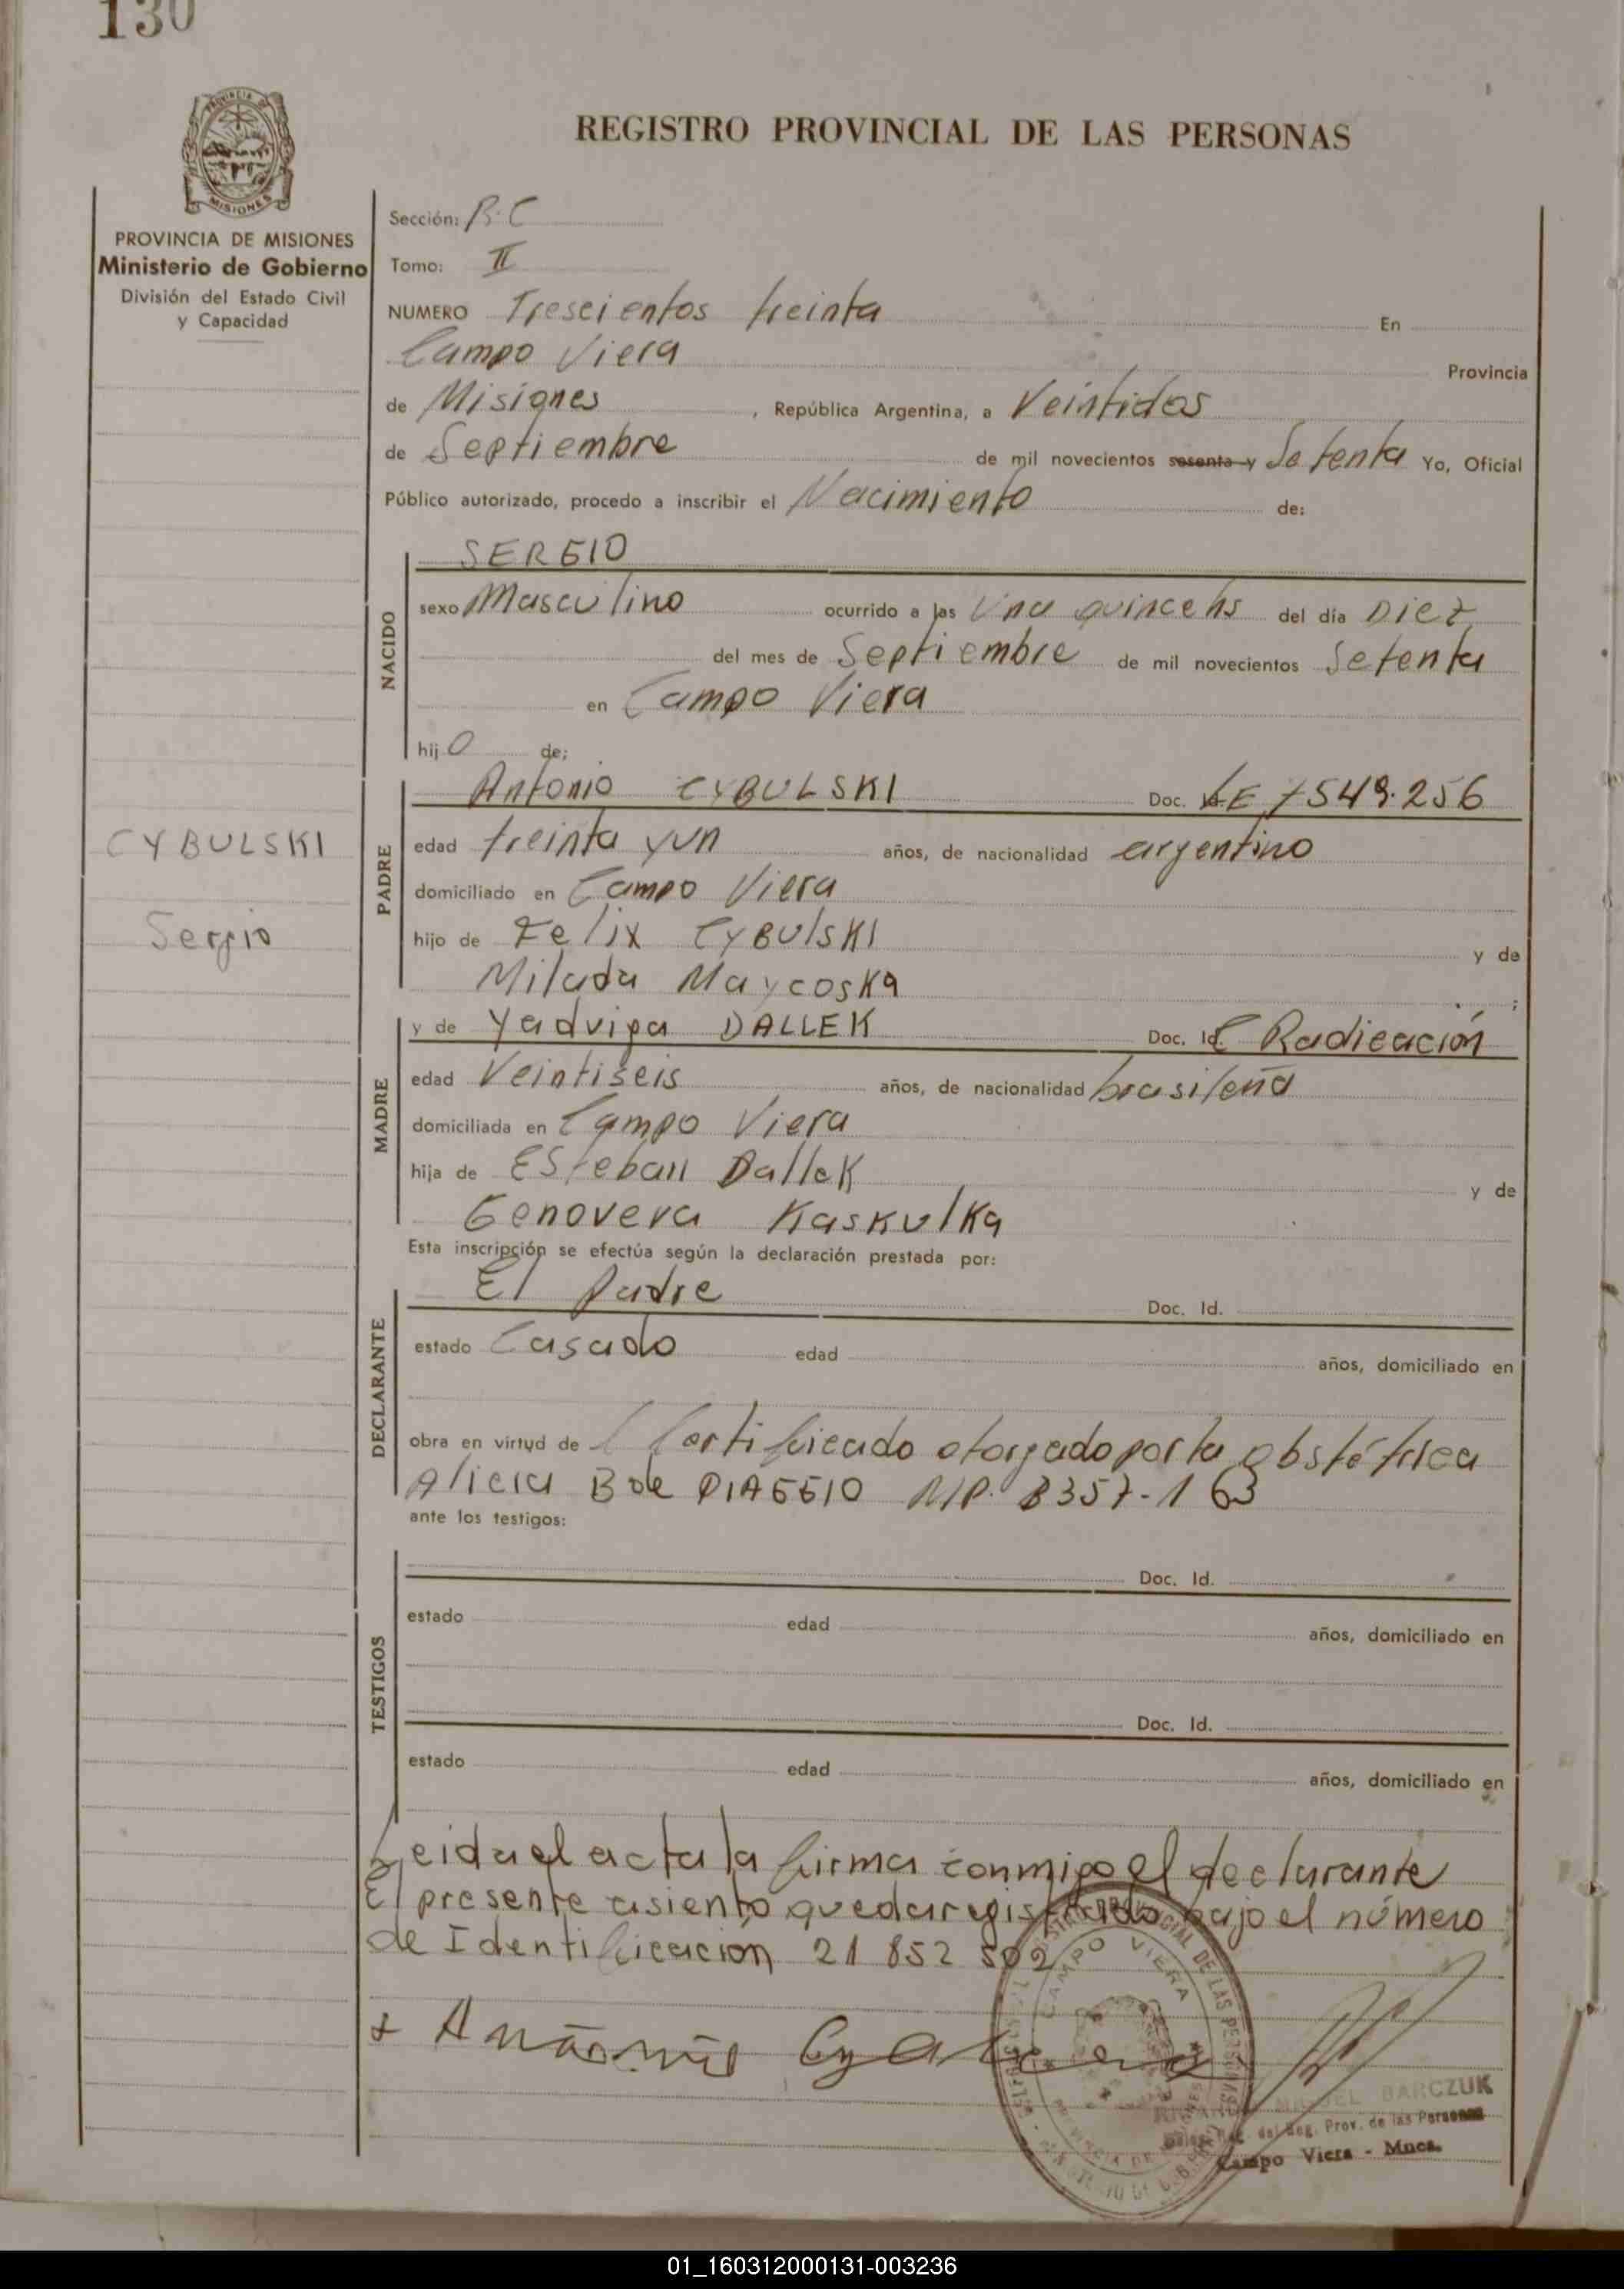 130
REGISTRO PROVINCIAL DE LAS PERSONAS
PROVINCIA DE
MISIONES
PROVINCIA DE MISIONES
Ministerio de Gobierno
División del Estado Civil
y Capacidad
Sección: R.C
Tomo: II
NUMERO Trescientos treinta En
Campo Viera Provincia
de Misiones, República Argentina, a Veintidos
de Septiembre de mil novecientos sesenta y Setenta Yo, Oficial
Público autorizado, procedo a inscribir el Nacimiento de:
NACIDO
SERGIO
sexo Masculino ocurrido a las Una quince hs del día Diez
del mes de Septiembre de mil novecientos Setenta
en Campo Viera
hijo de;
CYBULSKI
Sergio
PADRE
Antonio CYBULSKI Doc. LE 7549.256
edad treinta y un años, de nacionalidad argentino
domiciliado en Campo Viera
hijo de Felix CYBULSKI y de
Milada Maycoska ;
MADRE
y de Yadviga DALLEK Doc. Id. C Radicación
edad Veintiseis años, de nacionalidad brasileña
domiciliada en Campo Viera
hija de Esteban Dallek y de
Genoveva Kaskulka
Esta inscripción se efectúa según la declaración prestada por:
DECLARANTE
El Padre Doc. Id.
estado Casado edad años, domiciliado en
obra en virtud de l Certificado otorgado por la obstétrica
Alicia B de PIAGGIO M.P. 8357-163
ante los testigos:
TESTIGOS
Doc. Id.
estado edad años, domiciliado en
Doc. Id.
estado edad años, domiciliado en
Leida el acta la firma conmigo el declarante
El presente asiento queda registrado bajo el número
de Identificación 21 852 502
CAMPO VIERA
MIGUEL BARCZUK
Reg. Prov. de las Personas
Campo Viera - Mnes.
01_160312000131-003236